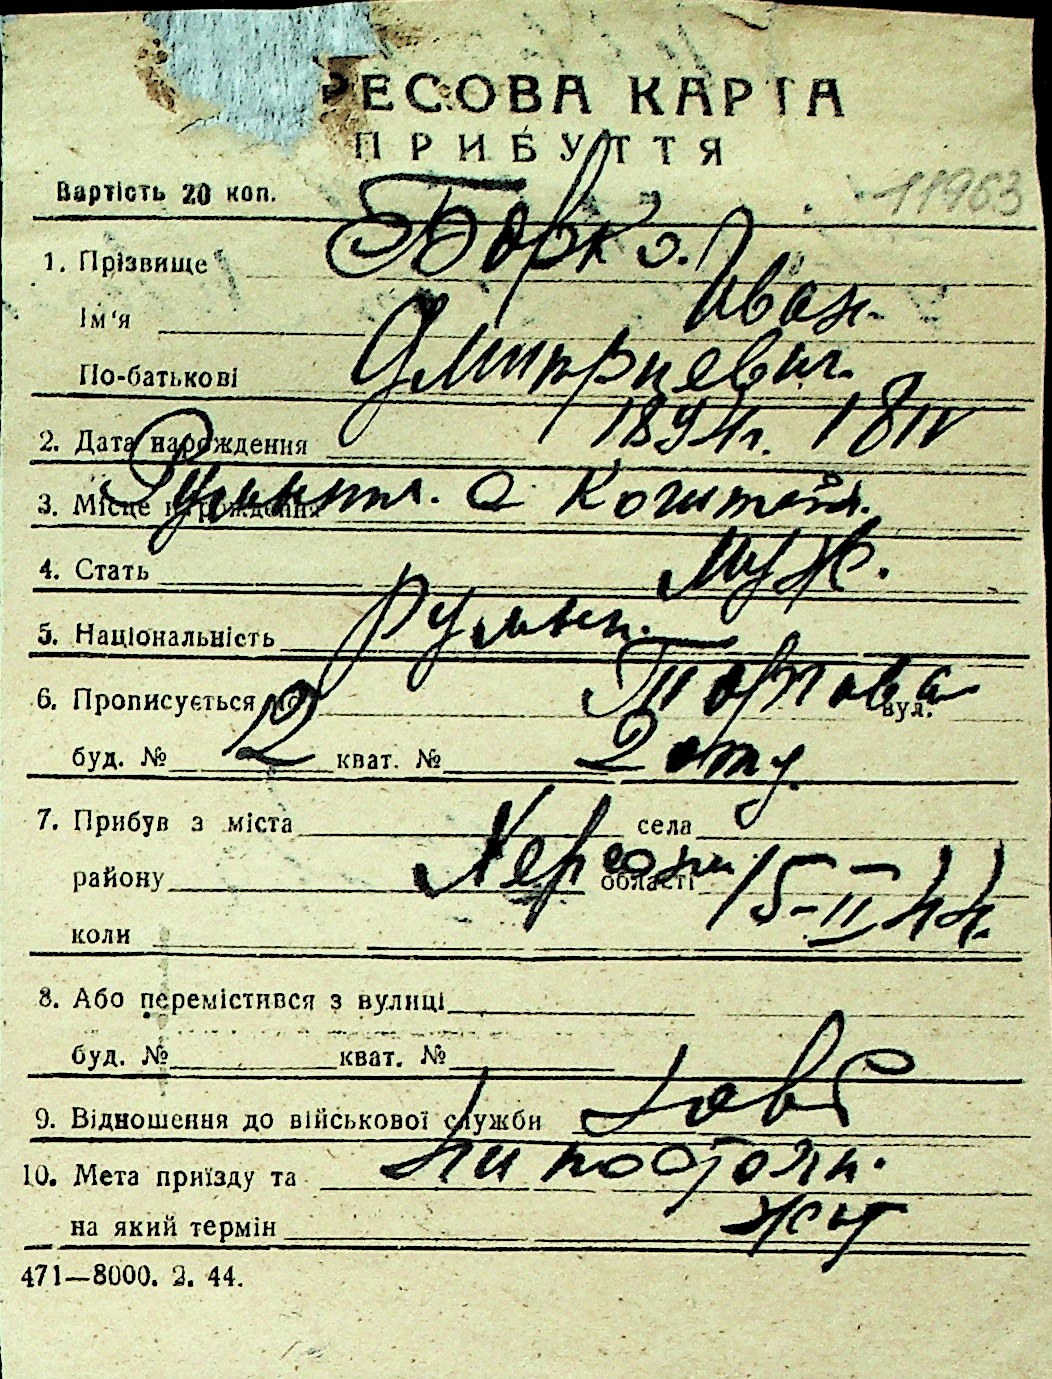 РЕСОВА КАРТА
ПРИБУТТЯ
Вартість 20 коп. 11963
1. Прізвище
Ім'я Иван.
По-батькові Дмитриевич.
2. Дата народження 1894г. 18 IV
3. Місце народження
4. Стать муж.
5. Національність румын.
6. Прописується по Торгова вуд.
буд. № 2 кват. №
7. Прибув з міста села
району Херсон області 15-II 44.
коли
8. Або перемістився з вулиці
буд. № кват. №
9. Відношення до військової служби
10. Мета приїзду та на постоян.
на який термін жит
471—8000. 2. 44.